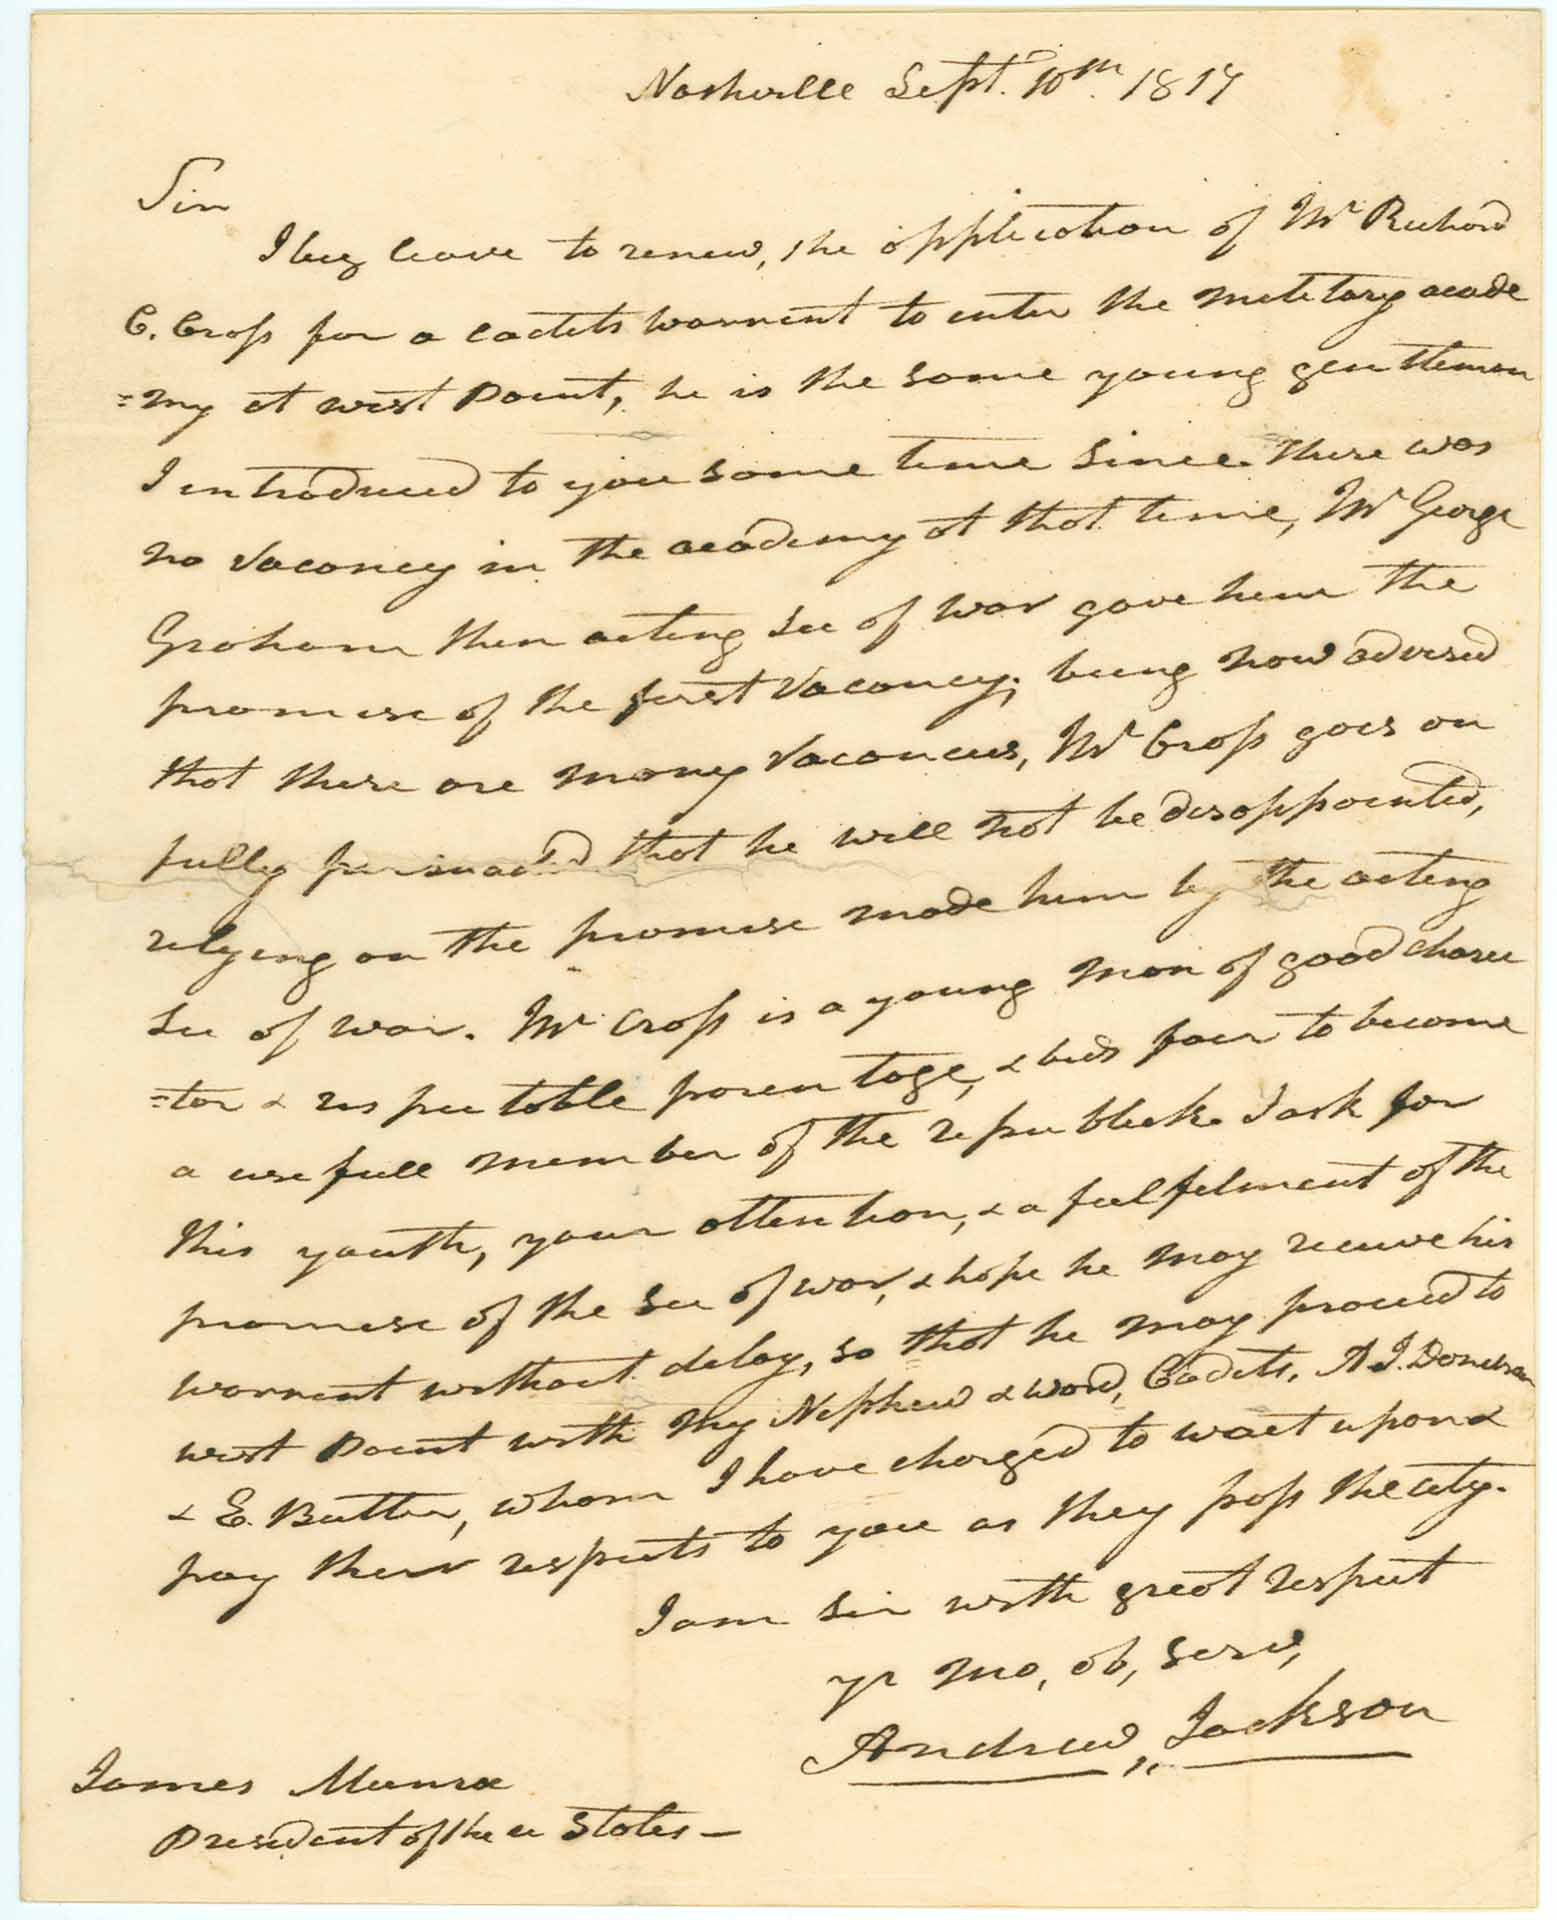 Nashville Sept. 10th. 1817
Sir
I beg leave to renew, the application of Mr Richard
C. Cross for a cadets warrent to enter the military acade
=my at west Point, he is the same young gentleman
I introduced to you some time since. There was
no vacancy in the academy at that time, Mr George
Graham then acting Sec of war gave him the
promise of the first vacancy; being now advised
that there are many vacancies, Mr Cross goes on
fully persuaded that he will not be disappointed,
relying on the promise made him by the acting
Sec of war. Mr Cross is a young man of good charec
=tor & respectable parentage, & bids fair to become
a usefull member of the republick. I ask for
this youth, your attention, & a fulfilment of the
promise of the Sec of war, & hope he may receive his
warrent without delay, so that he may proceed to
west Point with my Nephew & ward, Cadets, A J. Donelson
& E. Butler, whom I have charged to wait upon &
pay their respects to you as they pass the city.
I am Sir with great respect
yr mo, ob, serv,
Andrew,, Jackson
James Munroe
President of the u States—